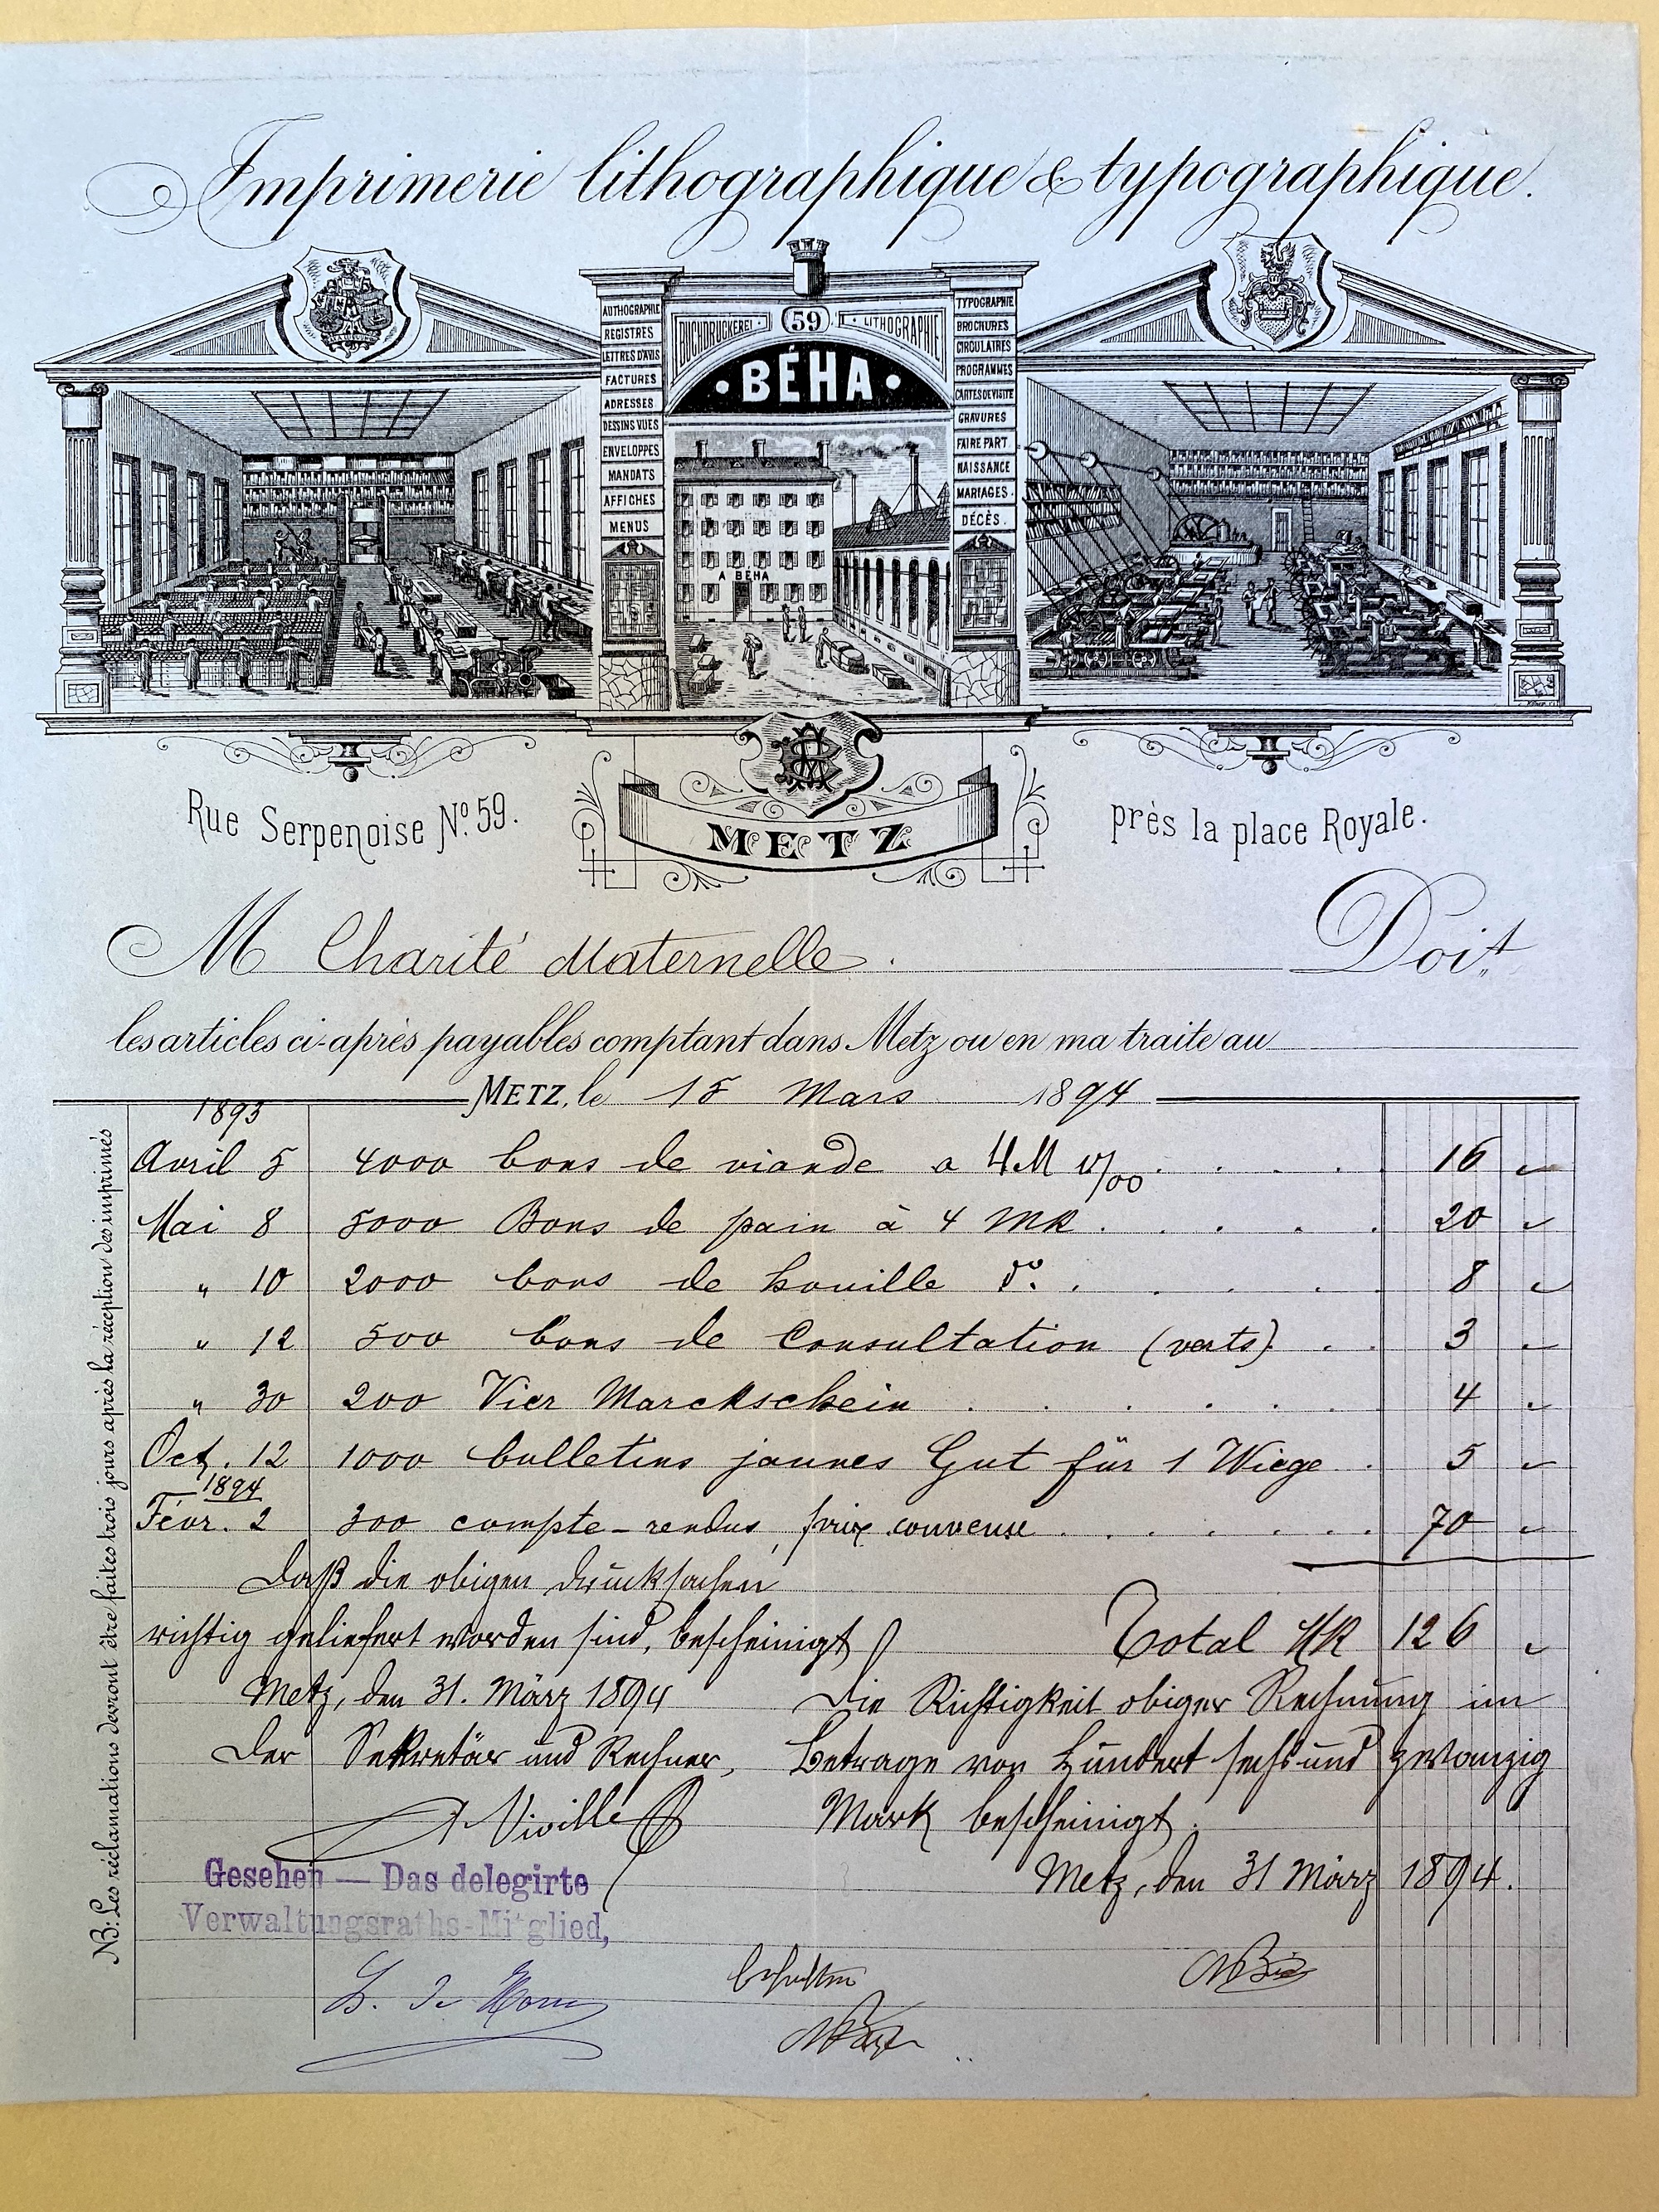 Imprimerie lithographique & typographique.
AUTHOGRAPHIE
REGISTRES
LETTRES D'AVIS
FACTURES
ADRESSES
DESSINS VUES
ENVELOPPES
MANDATS
AFFICHES
MENUS
BUCHDRUCKEREI 59 LITHOGRAPHIE
BÉHA
A BÉHA
TYPOGRAPHIE
BROCHURES
CIRCULAIRES
PROGRAMMES
CARTES DE VISITE
GRAVURES
FAIRE PART
NAISSANCE
MARIAGES.
DÉCÈS.
Rue Serpenoise No. 59.
METZ
près la place Royale.
M Charité Maternelle. Doit
les articles ci-après payables comptant dans Metz ou en ma traite au
METZ, le 15 Mars 1894
1893
Avril 5 4000 bons de viande a 4 M 0/00 . . . . 16 "
Mai 8 5000 Bons de pain à 4 MK . . . . . 20 "
" 10 2000 bons de houille do. . . . . 8 "
" 12 500 bons de Consultation (verts) . . 3 "
" 30 200 Vier Marckschein . . . . . . 4 "
Oct. 12 1000 bulletins jaunes Gut für 1 Wiege . 5 "
1894
Févr. 2 300 compte-rendus, prix convenu . . . . . . 70 "
Total MK 126 "
Daß die obigen Drucksachen
richtig geliefert worden sind, bescheinigt
Metz, den 31. März 1894
Der Sekretär und Rechner,
Viville
Die Richtigkeit obiger Rechnung im
Betrage von Hundert sechs und zwanzig
Mark bescheinigt.
Metz, den 31 März 1894.
Gesehen — Das delegirte
Verwaltungsraths-Mitglied,
NB: Les réclamations devront être faites trois jours après la réception des imprimés